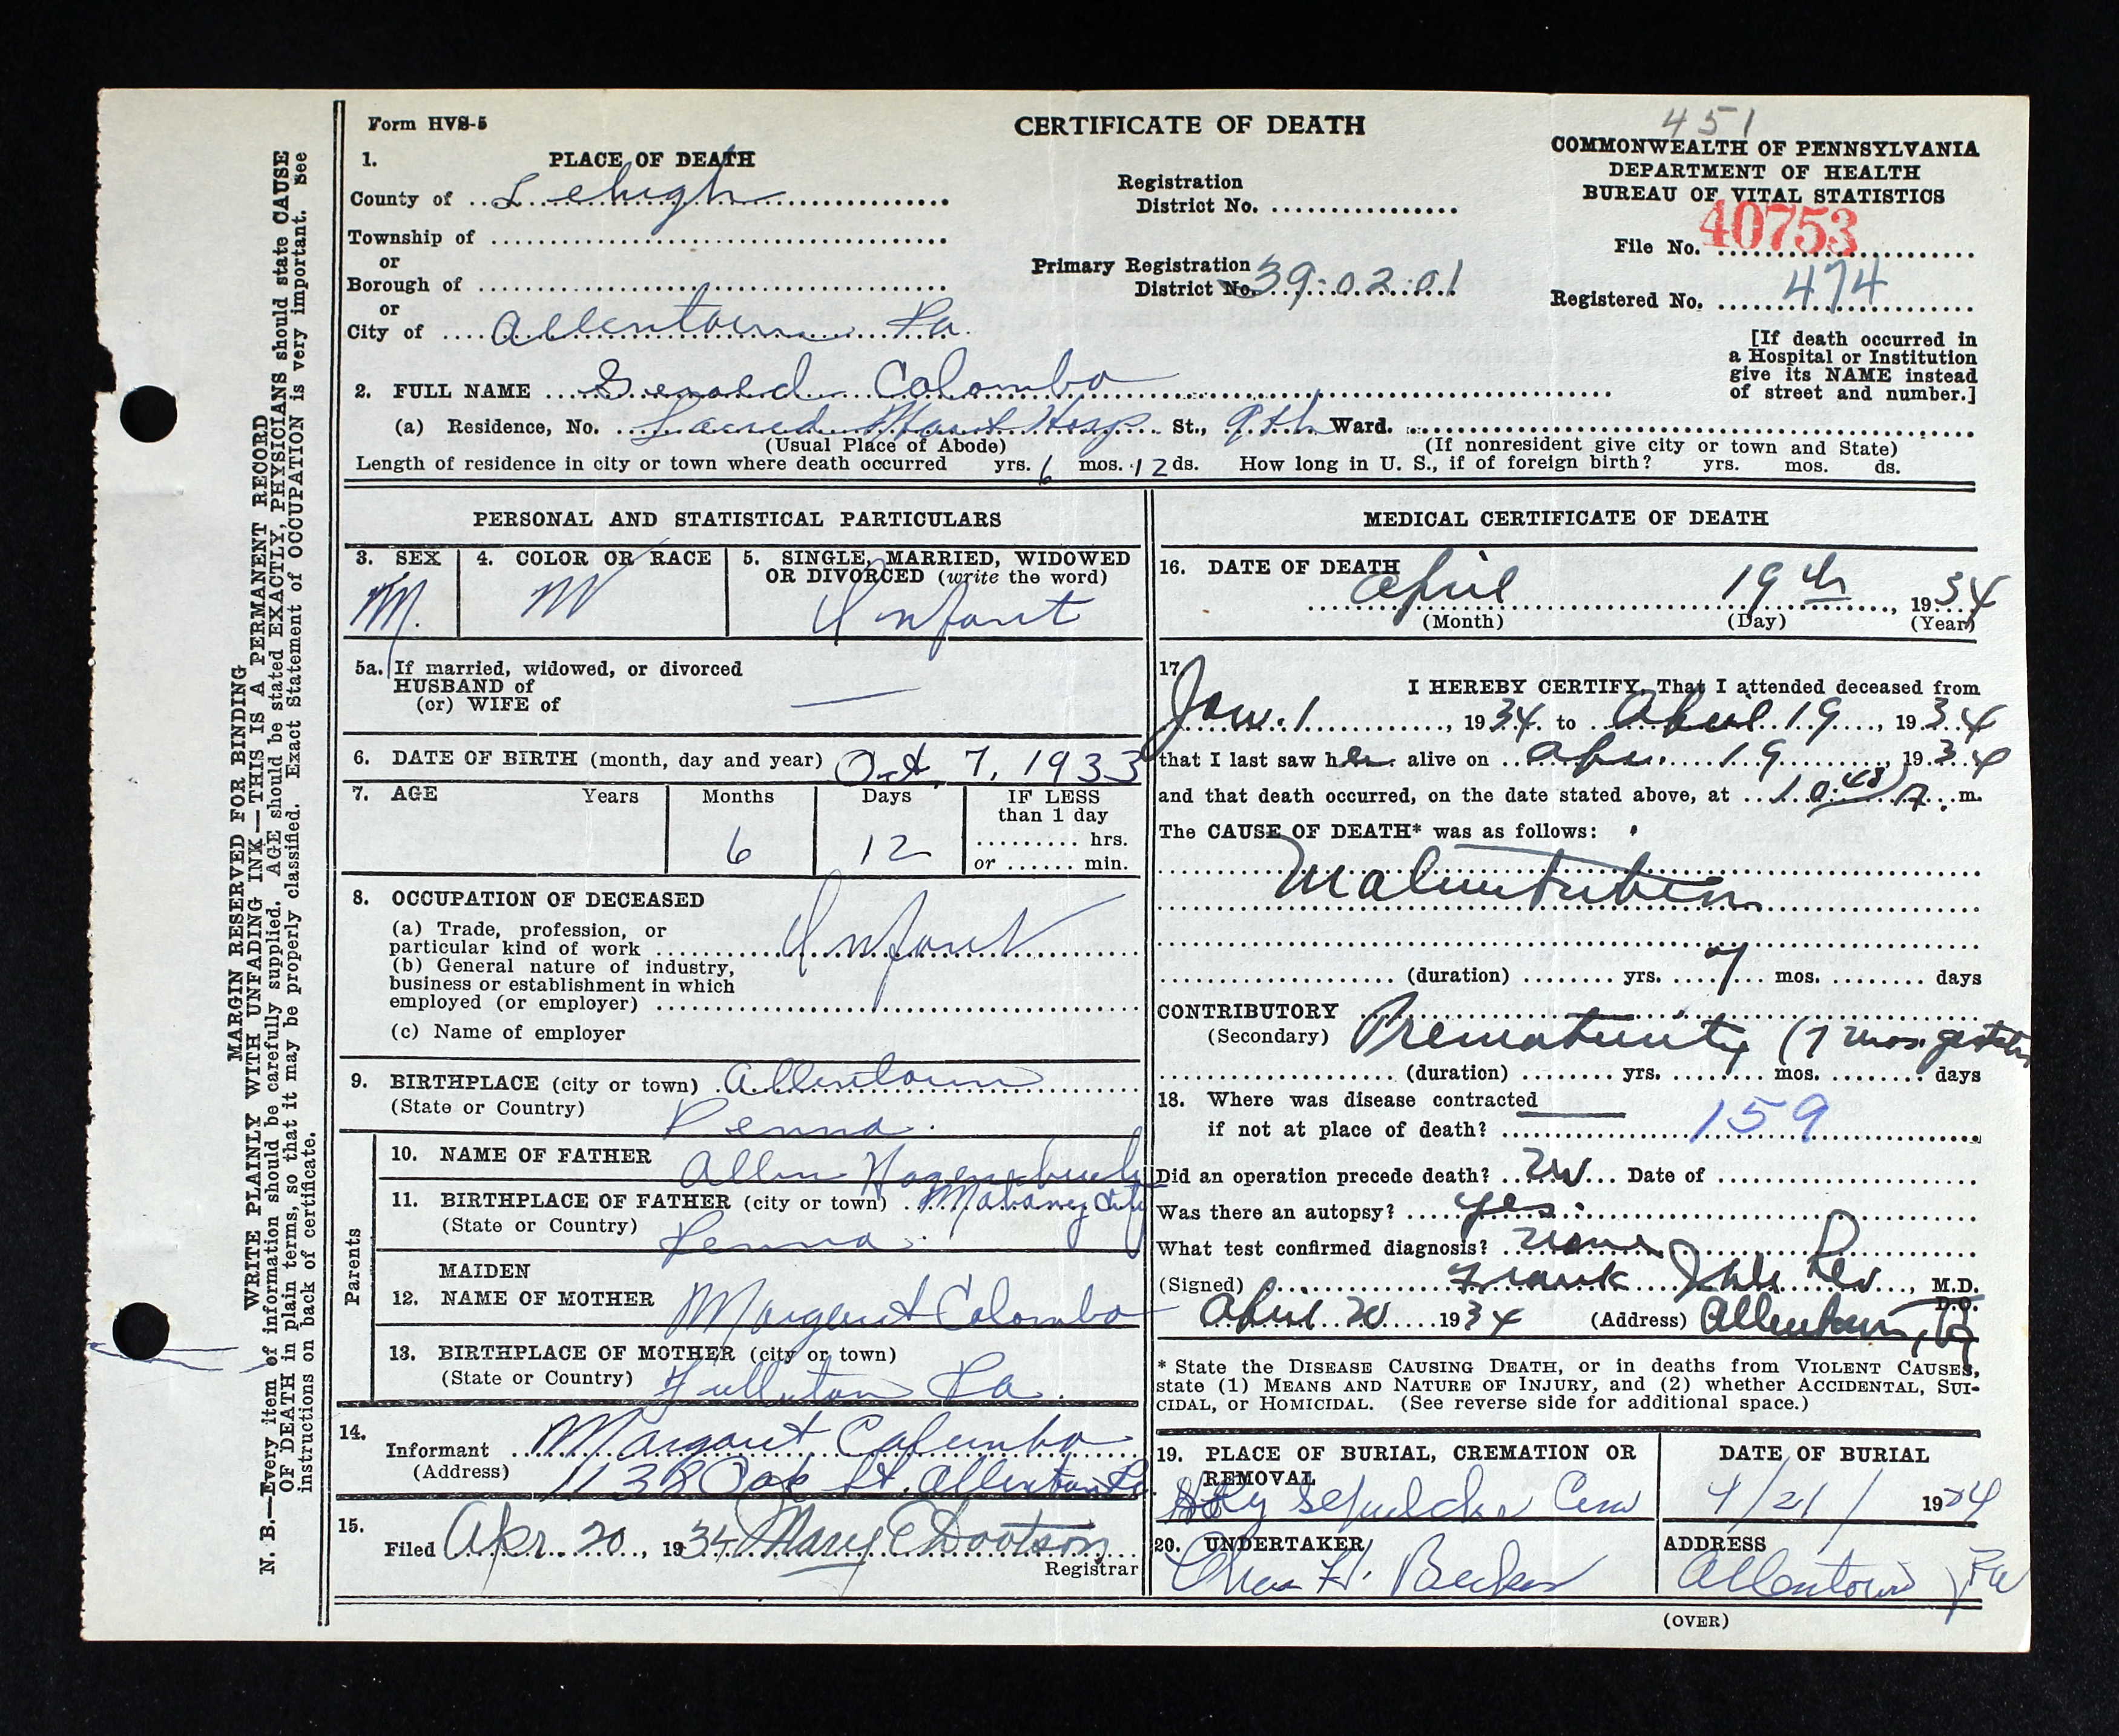 451
Form HVS-5
CERTIFICATE OF DEATH
COMMONWEALTH OF PENNSYLVANIA
DEPARTMENT OF HEALTH
BUREAU OF VITAL STATISTICS
1. PLACE OF DEATH
County of Lehigh
Township of
or
Borough of
or
City of Allentown Pa.
Registration
District No.
Primary Registration
District No. 39-02-01
File No. 40753
Registered No. 474
[If death occurred in
a Hospital or Institution
give its NAME instead
of street and number.]
2. FULL NAME Gerald Colombo
(a) Residence, No. Sacred Heart Hosp St., 9th Ward.
(Usual Place of Abode) (If nonresident give city or town and State)
Length of residence in city or town where death occurred yrs. 6 mos. 12 ds. How long in U. S., if of foreign birth? yrs. mos. ds.
PERSONAL AND STATISTICAL PARTICULARS
3. SEX
M.
4. COLOR OR RACE
W
5. SINGLE, MARRIED, WIDOWED
OR DIVORCED (write the word)
Infant
5a. If married, widowed, or divorced
HUSBAND of
(or) WIFE of
6. DATE OF BIRTH (month, day and year) Oct. 7, 1933
7. AGE Years Months Days IF LESS
than 1 day
hrs.
or min.
6 12
8. OCCUPATION OF DECEASED
(a) Trade, profession, or
particular kind of work Infant
(b) General nature of industry,
business or establishment in which
employed (or employer)
(c) Name of employer
9. BIRTHPLACE (city or town) Allentown
(State or Country) Penna.
Parents
10. NAME OF FATHER Allen
11. BIRTHPLACE OF FATHER (city or town) Mahanoy City
(State or Country) Penna.
MAIDEN
12. NAME OF MOTHER Margaret Colombo
13. BIRTHPLACE OF MOTHER (city or town)
(State or Country) Fullerton Pa.
14.
Informant Margaret Colombo
(Address) 1138 Oak St. Allentown Pa
15.
Filed Apr. 20, 1934 Mary E Dootson
Registrar
MEDICAL CERTIFICATE OF DEATH
16. DATE OF DEATH
April 19th, 1934
(Month) (Day) (Year)
17.
I HEREBY CERTIFY, That I attended deceased from
Jan. 1, 1934 to April 19, 1934
that I last saw h alive on Apr. 19, 1934
and that death occurred, on the date stated above, at 10:48 m.
The CAUSE OF DEATH* was as follows:
Malnutrition
(duration) yrs. 7 mos. days
CONTRIBUTORY
(Secondary) Prematurity (7 mos. gestation
(duration) yrs. mos. days
18. Where was disease contracted
if not at place of death? 159
Did an operation precede death? No Date of
Was there an autopsy? yes.
What test confirmed diagnosis? None
(Signed) Frank M.D.
D.O.
April 20 1934 (Address) Allentown, Pa
* State the DISEASE CAUSING DEATH, or in deaths from VIOLENT CAUSES,
state (1) MEANS AND NATURE OF INJURY, and (2) whether ACCIDENTAL, SUI-
CIDAL, or HOMICIDAL. (See reverse side for additional space.)
19. PLACE OF BURIAL, CREMATION OR
REMOVAL
Holy Sepulchre Cem
DATE OF BURIAL
4/21/ 1934
20. UNDERTAKER
Chas H. Becker
ADDRESS
Allentown, Pa
(OVER)
MARGIN RESERVED FOR BINDING
WRITE PLAINLY WITH UNFADING INK—THIS IS A PERMANENT RECORD
N. B.—Every item of information should be carefully supplied. AGE should be stated EXACTLY, PHYSICIANS should state CAUSE
OF DEATH in plain terms, so that it may be properly classified. Exact Statement of OCCUPATION is very important. See
instructions on back of certificate.